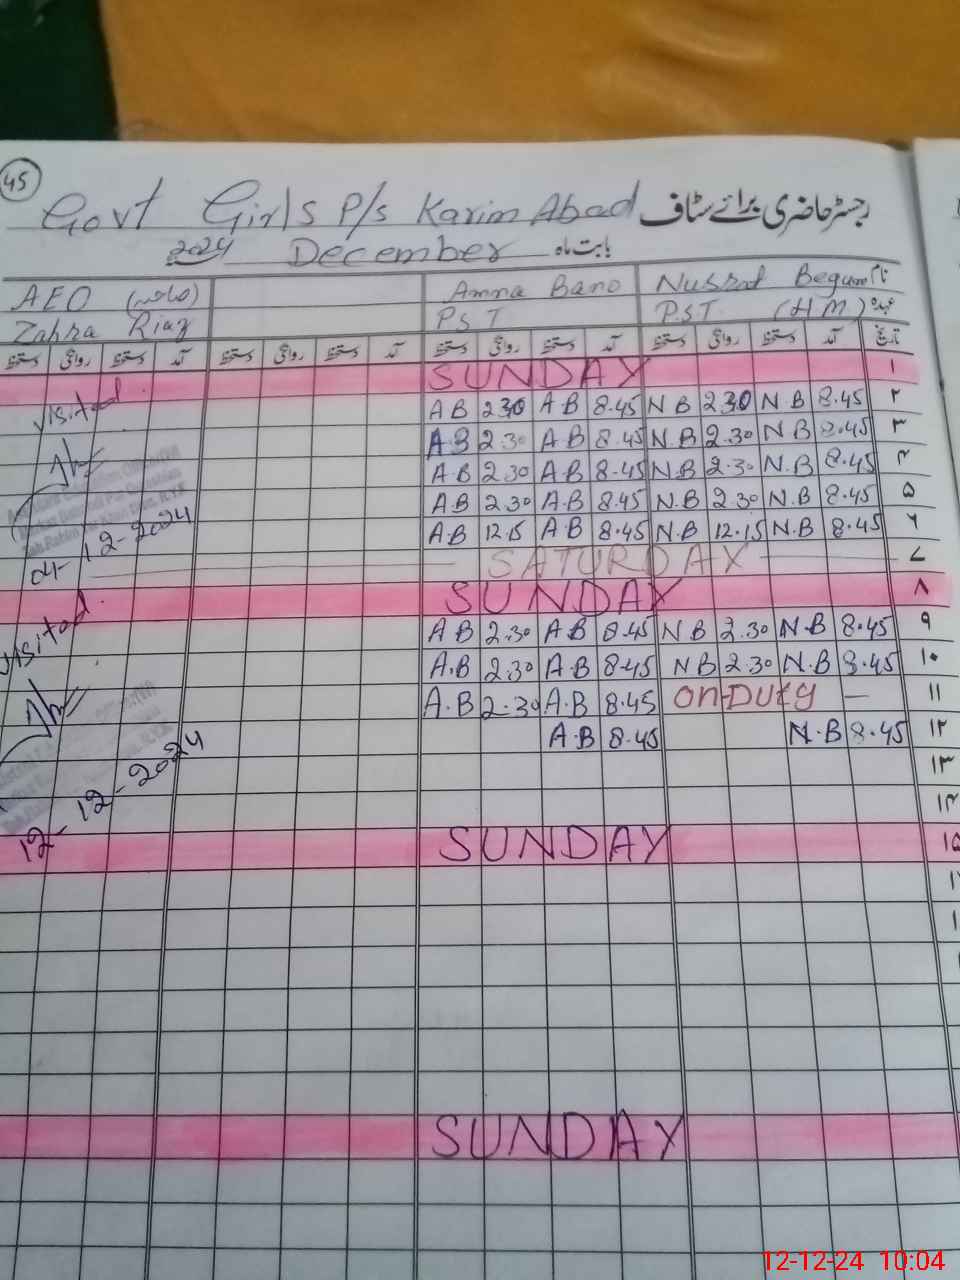 45
Govt Girls P/s Karim Abad رجسٹر حاضری برائے سٹاف
2024 December بابت ماہ
AEO Amna Bano Nusrat Begum نام
Zahra Riaz PST PST (HM) عہدہ
دستخط روانگی دستخط آمد دستخط روانگی دستخط آمد دستخط روانگی دستخط آمد دستخط روانگی دستخط آمد تاریخ
SUNDAY ۱
visited
AB 2.30 AB 8.45 NB 2.30 N.B 8.45 ۲
AB 2.30 AB 8.45 N.B 2.30 N.B 8.45 ۳
AB 2.30 AB 8.45 N.B 2.30 N.B 8.45 ۴
AB 2.30 AB 8.45 N.B 2.30 N.B 8.45 ۵
AB 12.15 AB 8.45 N.B 12.15 N.B 8.45 ۶
04-12-2024
SATURDAY ۷
SUNDAY ۸
visited
AB 2.30 AB 8.45 NB 2.30 N.B 8.45 ۹
A.B 2.30 A.B 8.45 NB 2.30 N.B 8.45 ۱۰
A.B 2.30 A.B 8.45 On Duty — ۱۱
A.B 8.45 N.B 8.45 ۱۲
۱۳
12-12-2024
۱۴
SUNDAY ۱۵
SUNDAY
12-12-24 10:04